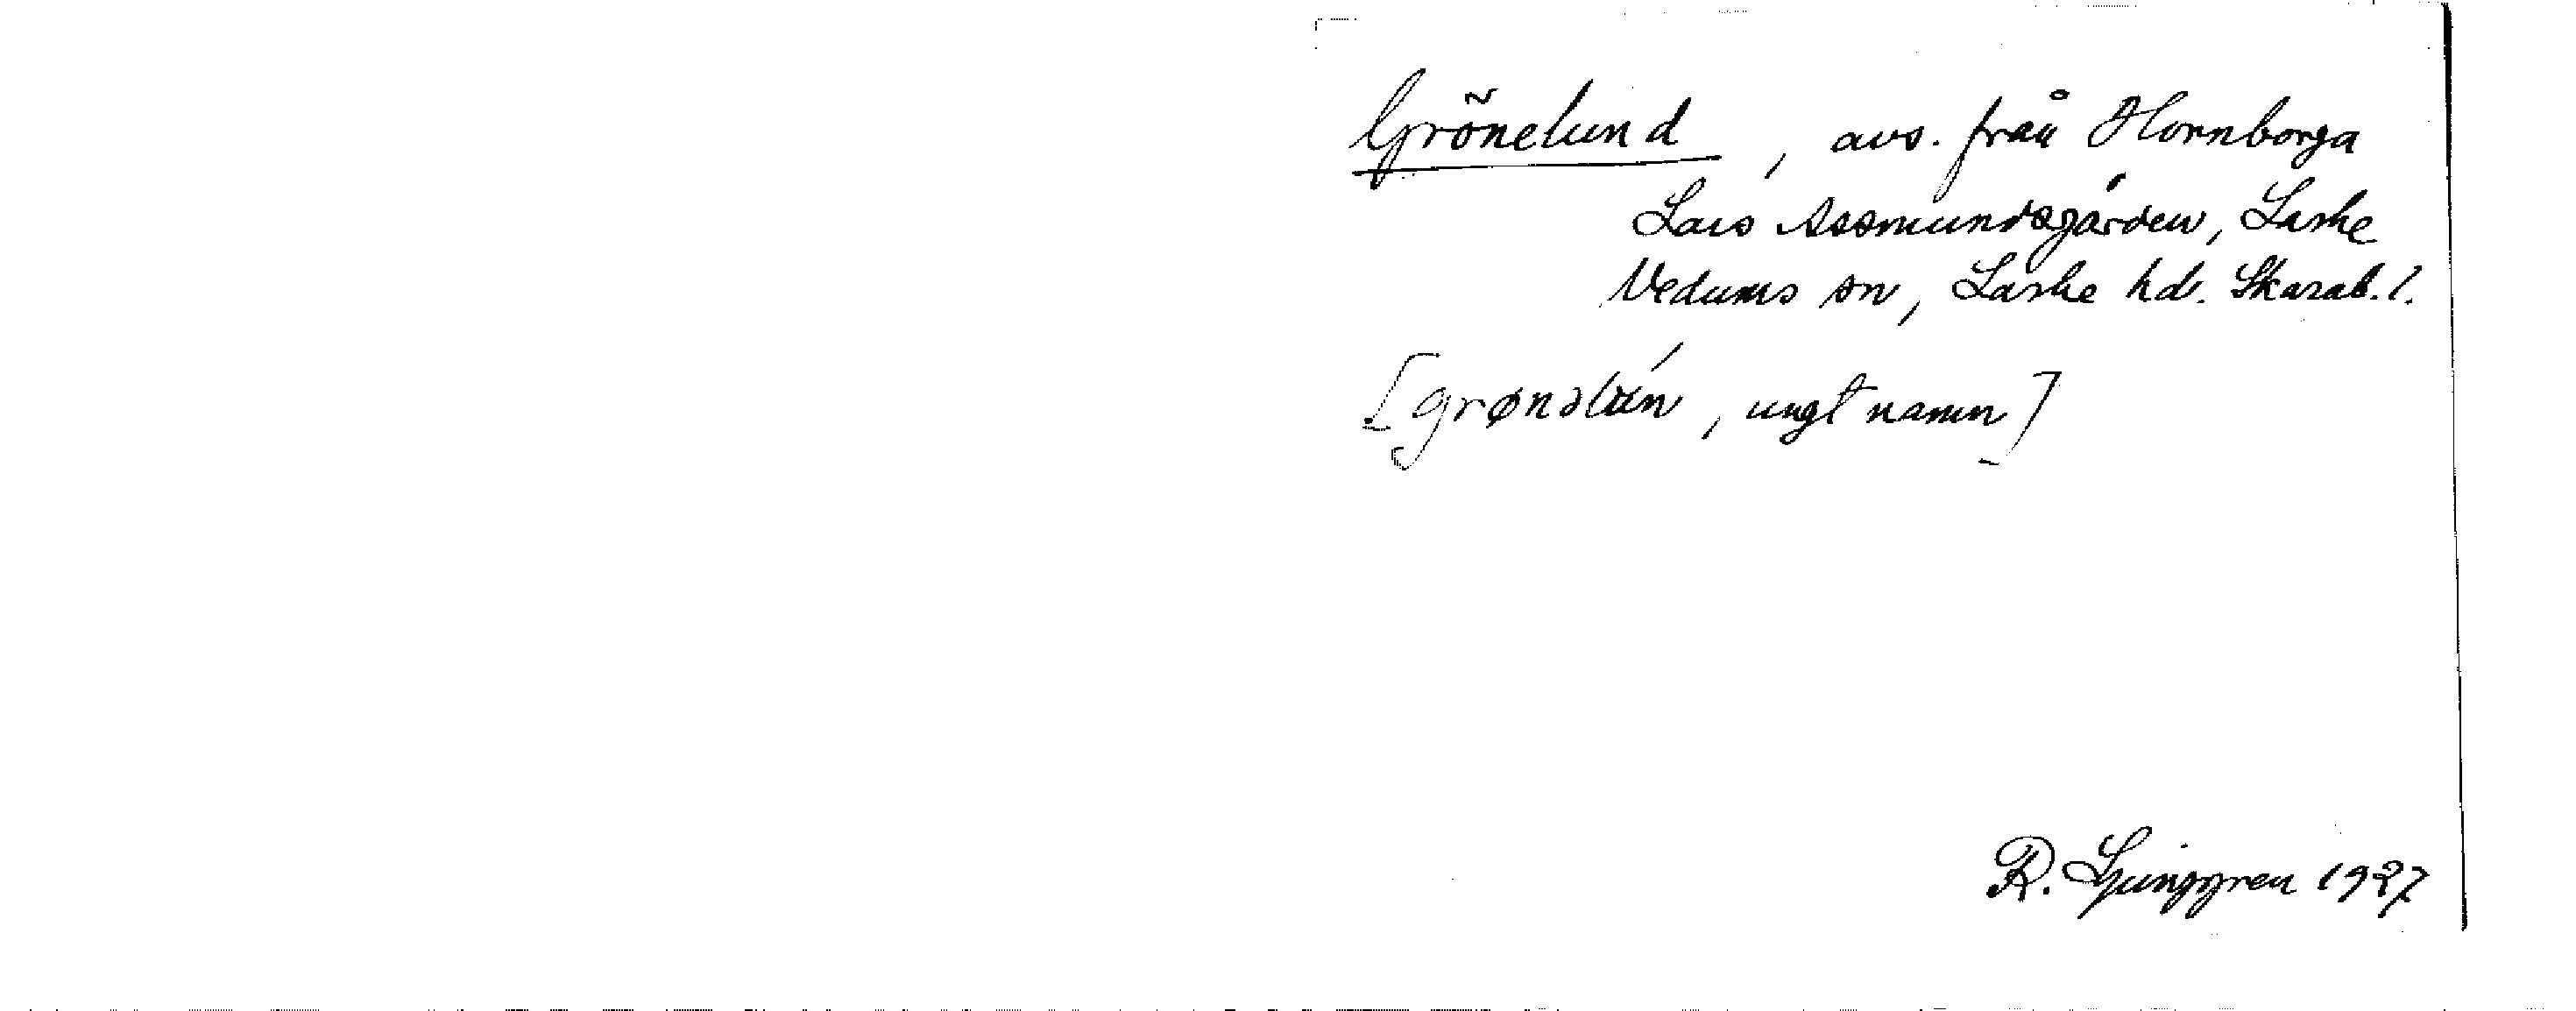 Grönelund, avs. från Hornborga
Lars Assmundsgården, Laske
Vedums sn, Laske hd. Skarab. l.
[grønəlún, ungt namn]
R. Ljunggren 1927